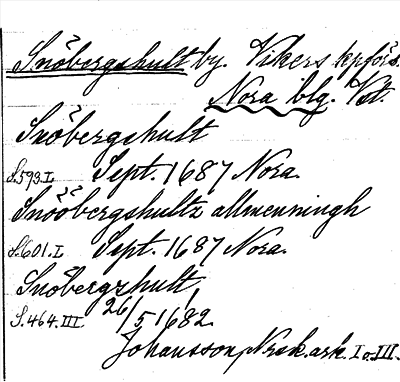 Snöbergshult by. Vikers kpförs.
Nora blg. Vst.
Snöbergshult
S.593.I Sept. 1687 Nora.
Snööbergshultz allmenningh
S.601.I Sept. 1687 Nora.
Snöbergzhult,
S.464.III 26/5 1682.
Johansson, Nrsk. ark. I o. III.